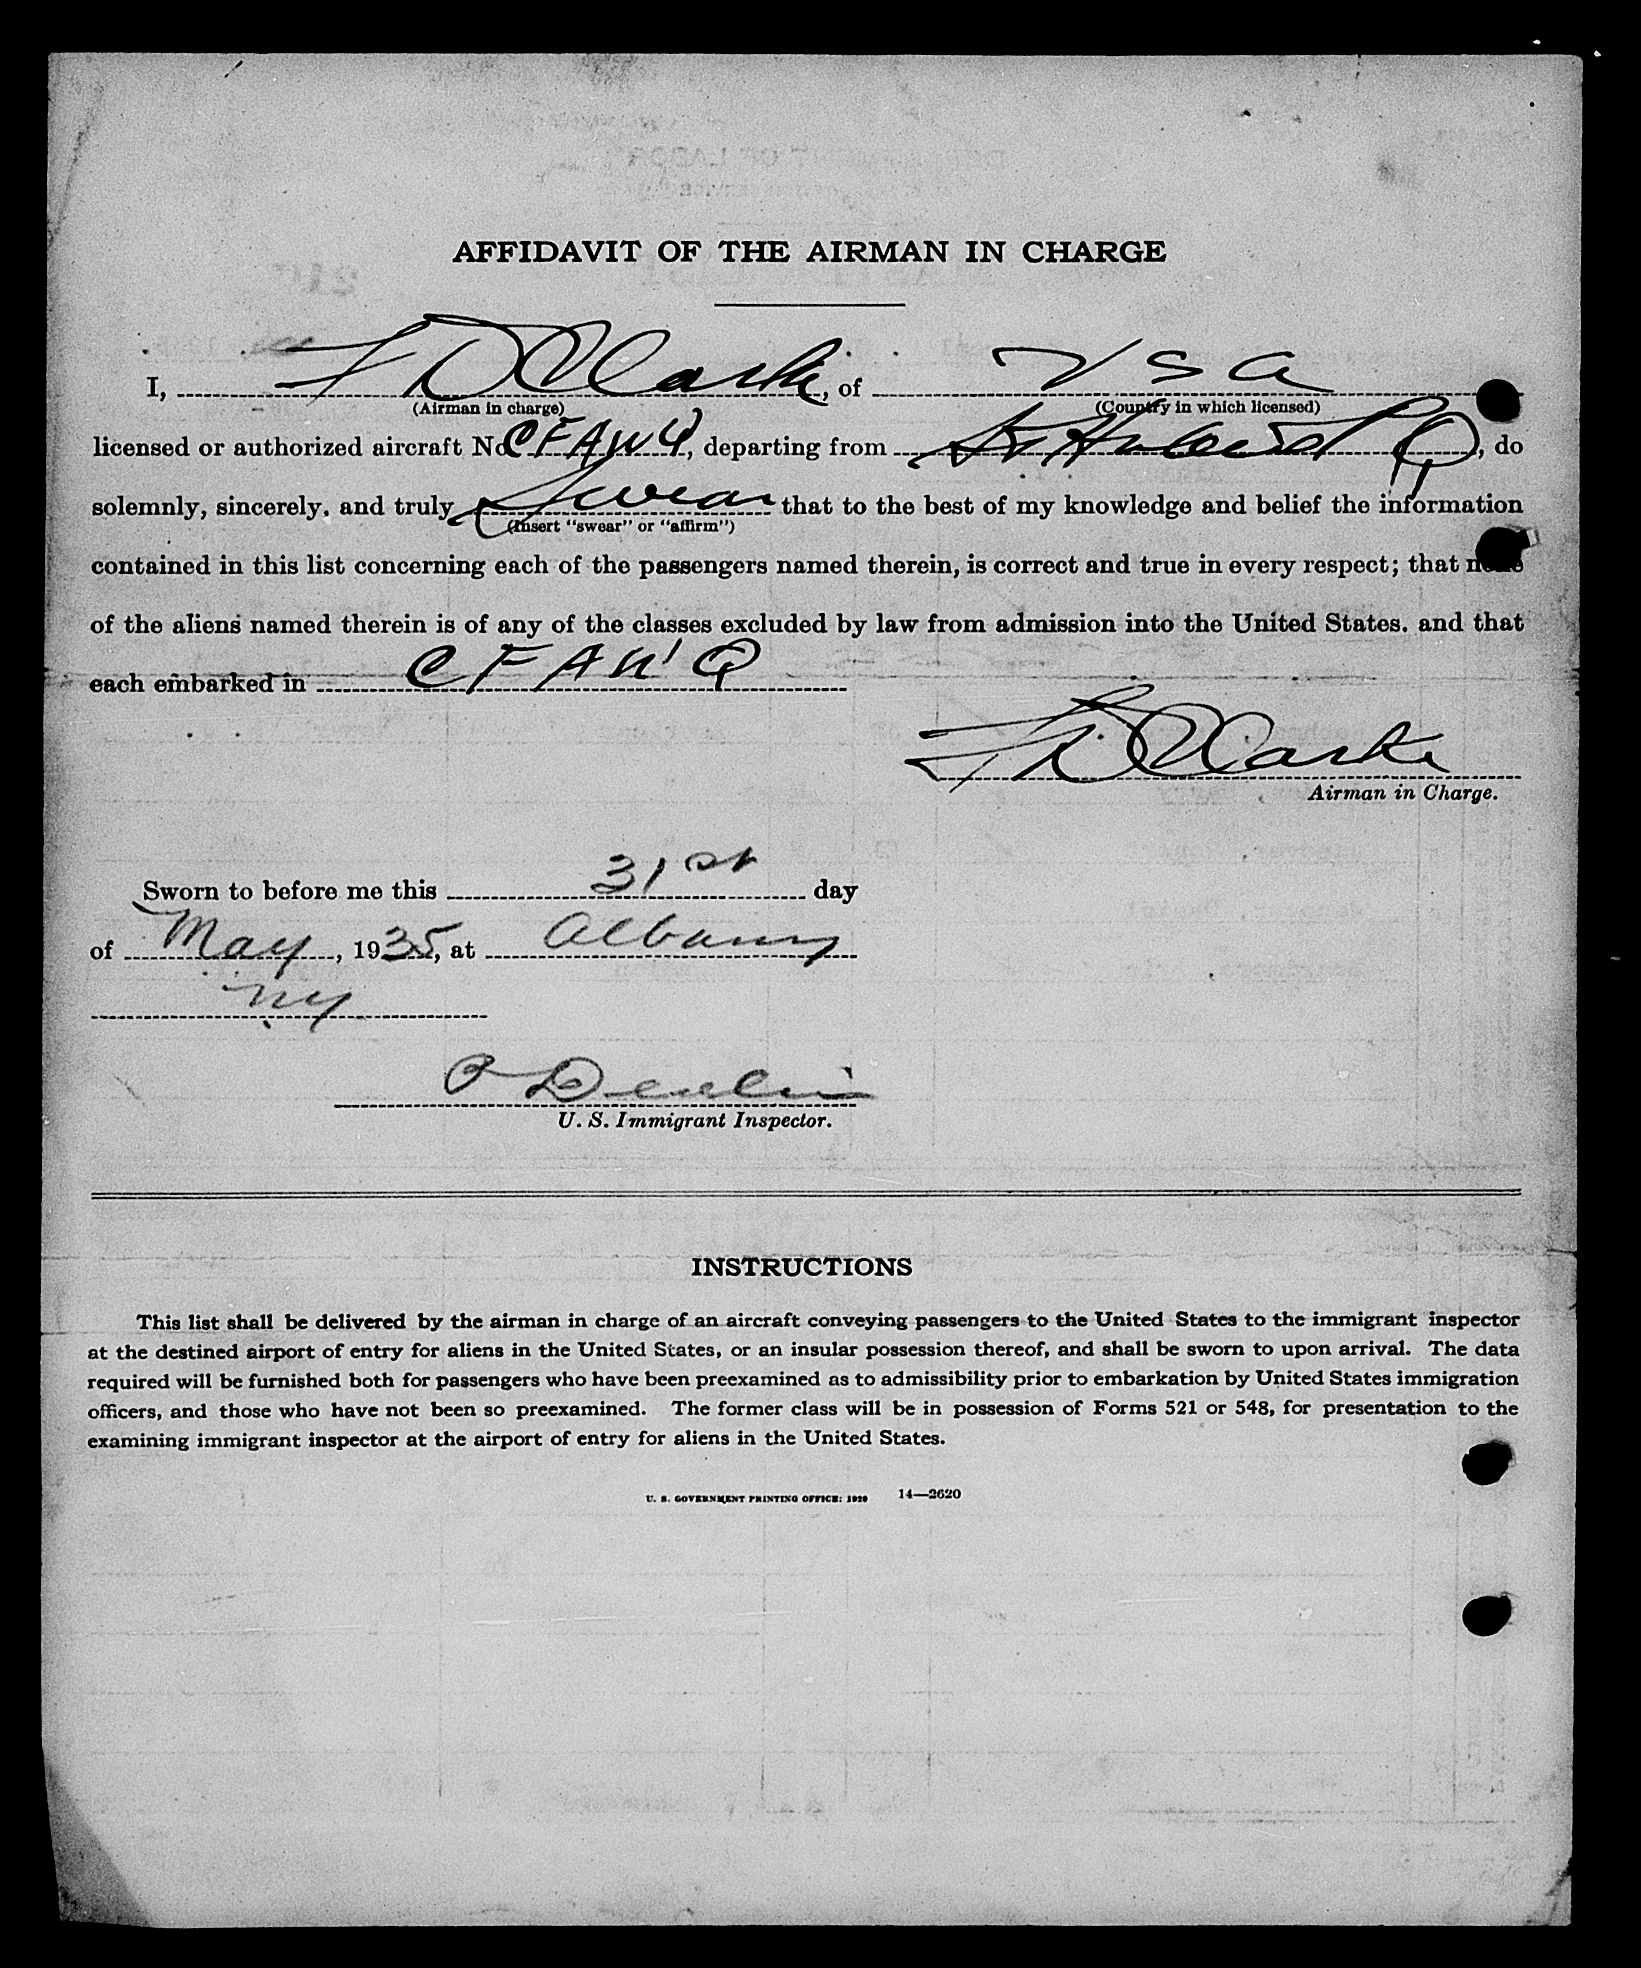 AFFIDAVIT OF THE AIRMAN IN CHARGE
I, F D Clarke, of U S A
(Airman in charge) (Country in which licensed)
licensed or authorized aircraft No. CFAWQ, departing from St Hubert P Q, do
solemnly, sincerely, and truly Swear that to the best of my knowledge and belief the information
(Insert "swear" or "affirm")
contained in this list concerning each of the passengers named therein, is correct and true in every respect; that none
of the aliens named therein is of any of the classes excluded by law from admission into the United States, and that
each embarked in C F A W Q
F D Clarke
Airman in Charge.
Sworn to before me this 31st day
of May, 1935, at Albany
NY
Devlin
U. S. Immigrant Inspector.
INSTRUCTIONS
This list shall be delivered by the airman in charge of an aircraft conveying passengers to the United States to the immigrant inspector
at the destined airport of entry for aliens in the United States, or an insular possession thereof, and shall be sworn to upon arrival. The data
required will be furnished both for passengers who have been preexamined as to admissibility prior to embarkation by United States immigration
officers, and those who have not been so preexamined. The former class will be in possession of Forms 521 or 548, for presentation to the
examining immigrant inspector at the airport of entry for aliens in the United States.
U. S. GOVERNMENT PRINTING OFFICE: 1929 14—2620